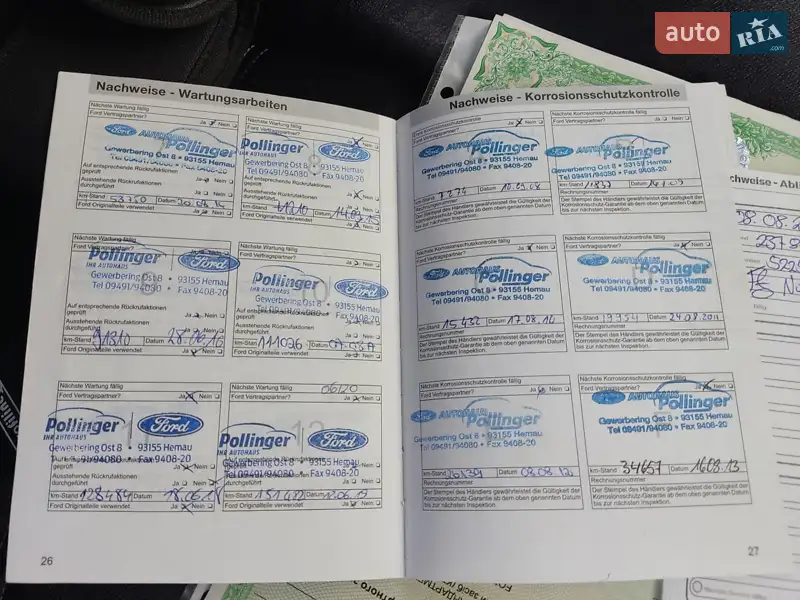 auto RIA.com
Nachweise - Wartungsarbeiten
Nächste Wartung fällig
Ford Vertragspartner? Ja Nein
AUTOHAUS Pollinger
Gewerbering Ost 8 • 93155 Hemau
Tel 09491/94080 • Fax 9408-20
Auf entsprechende Rückrufaktionen
geprüft Ja Nein
Ausstehende Rückrufaktionen
durchgeführt Ja Nein
km-Stand 53750 Datum
Ford Originalteile verwendet Ja Nein
Nächste Wartung fällig
Ford Vertragspartner? Ja Nein
Pollinger Ford
IHR AUTOHAUS
Gewerbering Ost 8 • 93155 Hemau
Tel. 09491/94080 • Fax 9408-20
km-Stand Datum
Ford Originalteile verwendet Ja Nein
Nächste Wartung fällig
Ford Vertragspartner?
Pollinger Ford
IHR AUTOHAUS
Gewerbering Ost 8 • 93155 Hemau
Tel. 09491/94080 • Fax 9408-20
Auf entsprechende Rückrufaktionen
geprüft Ja Nein
Ausstehende Rückrufaktionen
durchgeführt Ja Nein
km-Stand 91810 Datum 28.06.16
Ford Originalteile verwendet Ja Nein
Nächste Wartung fällig
Ford Vertragspartner? Ja Nein
Pollinger Ford
IHR AUTOHAUS
Gewerbering Ost 8 • 93155 Hemau
Tel. 09491/94080 • Fax 9408-20
Ausstehende Rückrufaktionen
durchgeführt Ja Nein
km-Stand 111026 Datum
Ford Originalteile verwendet Ja Nein
Nächste Wartung fällig
Ford Vertragspartner? Ja Nein
Pollinger Ford
IHR AUTOHAUS
Gewerbering Ost 8 • 93155 Hemau
Tel. 09491/94080 • Fax 9408-20
geprüft Ja Nein
Ausstehende Rückrufaktionen
durchgeführt Ja Nein
km-Stand 128484 Datum 18.06.18
Ford Originalteile verwendet Ja Nein
Nächste Wartung fällig 06/20
Ford Vertragspartner? Ja Nein
Pollinger Ford
IHR AUTOHAUS
Gewerbering Ost 8 • 93155 Hemau
Tel. 09491/94080 • Fax 9408-20
durchgeführt Ja Nein
km-Stand 151472 Datum
Ford Originalteile verwendet Ja Nein
26
Nachweise - Korrosionsschutzkontrolle
Ford Vertragspartner? Ja Nein
AUTOHAUS Pollinger
Gewerbering Ost 8 • 93155 Hemau
Tel 09491/94080 • Fax 9408-20
km-Stand 7274 Datum 10.09.08
Rechnungsnummer
Der Stempel des Händlers gewährleistet die Gültigkeit der
Korrosionsschutz-Garantie ab dem oben genannten Datum
bis zur nächsten Inspektion.
Nächste Korrosionsschutzkontrolle fällig
Ford Vertragspartner? Ja Nein
AUTOHAUS Pollinger
Gewerbering Ost 8 • 93155 Hemau
Tel 09491/94080 • Fax 9408-20
km-Stand Datum
Rechnungsnummer
Der Stempel des Händlers gewährleistet die Gültigkeit der
Korrosionsschutz-Garantie ab dem oben genannten Datum
bis zur nächsten Inspektion.
Nächste Korrosionsschutzkontrolle fällig
Ford Vertragspartner? Ja Nein
AUTOHAUS Pollinger
Gewerbering Ost 8 • 93155 Hemau
Tel 09491/94080 • Fax 9408-20
km-Stand 15432 Datum 17.08.10
Rechnungsnummer
Der Stempel des Händlers gewährleistet die Gültigkeit der
Korrosionsschutz-Garantie ab dem oben genannten Datum
bis zur nächsten Inspektion.
Nächste Korrosionsschutzkontrolle fällig
Ford Vertragspartner? Ja Nein
AUTOHAUS Pollinger
Gewerbering Ost 8 • 93155 Hemau
Tel 09491/94080 • Fax 9408-20
km-Stand 19954 Datum 24.08.2011
Rechnungsnummer
Der Stempel des Händlers gewährleistet die Gültigkeit der
Korrosionsschutz-Garantie ab dem oben genannten Datum
bis zur nächsten Inspektion.
Nächste Korrosionsschutzkontrolle fällig
Ford Vertragspartner? Ja Nein
AUTOHAUS Pollinger
Gewerbering Ost 8 • 93155 Hemau
Tel 09491/94080 • Fax 9408-20
km-Stand Datum 08.08.12
Rechnungsnummer
Der Stempel des Händlers gewährleistet die Gültigkeit der
Korrosionsschutz-Garantie ab dem oben genannten Datum
bis zur nächsten Inspektion.
Nächste Korrosionsschutzkontrolle fällig
Ford Vertragspartner? Ja Nein
AUTOHAUS Pollinger
Gewerbering Ost 8 • 93155 Hemau
Tel 09491/94080 • Fax 9408-20
km-Stand 34657 Datum 16.08.13
Rechnungsnummer
Der Stempel des Händlers gewährleistet die Gültigkeit der
Korrosionsschutz-Garantie ab dem oben genannten Datum
bis zur nächsten Inspektion.
27